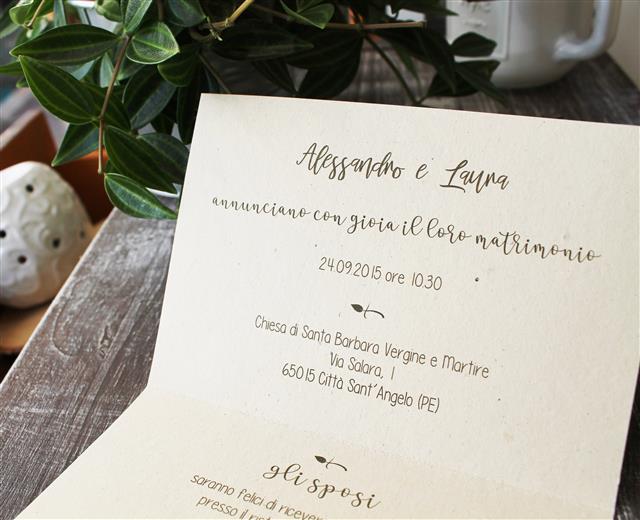 Alessandro e Laura
annunciano con gioia il loro matrimonio
24.09.2015 ore 10.30
Chiesa di Santa Barbara Vergine e Martire
Via Salara, 1
65015 Città Sant'Angelo (PE)
gli sposi
saranno felici di ricever
presso il rist